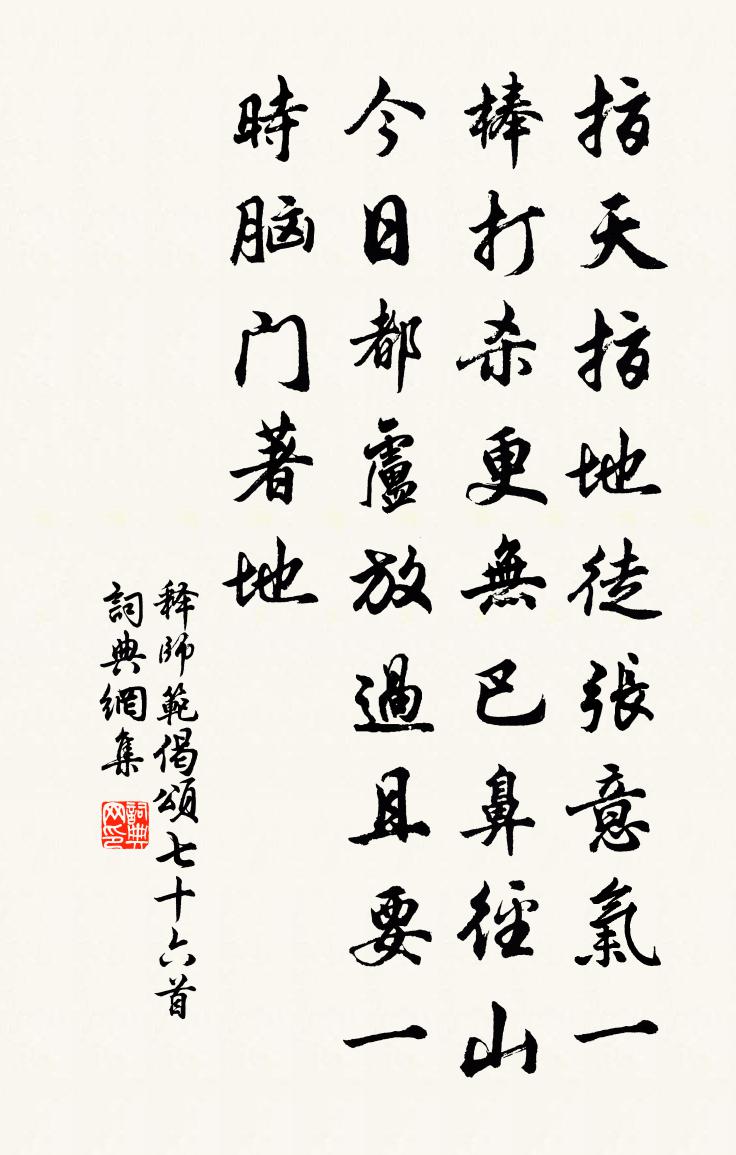 指天指地徒張意氣一
棒打杀更無巴鼻徑山
今日都盧放過且要一
時脑门著地
释師範偈頌七十六首
詞典網集
詞典网印